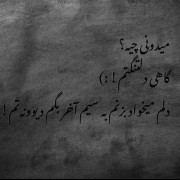 میدونی چیه؟
گاهی دلتنگتم! :)
دلم میخواد بزنم به سیم آخر بگم دیوونه تم!